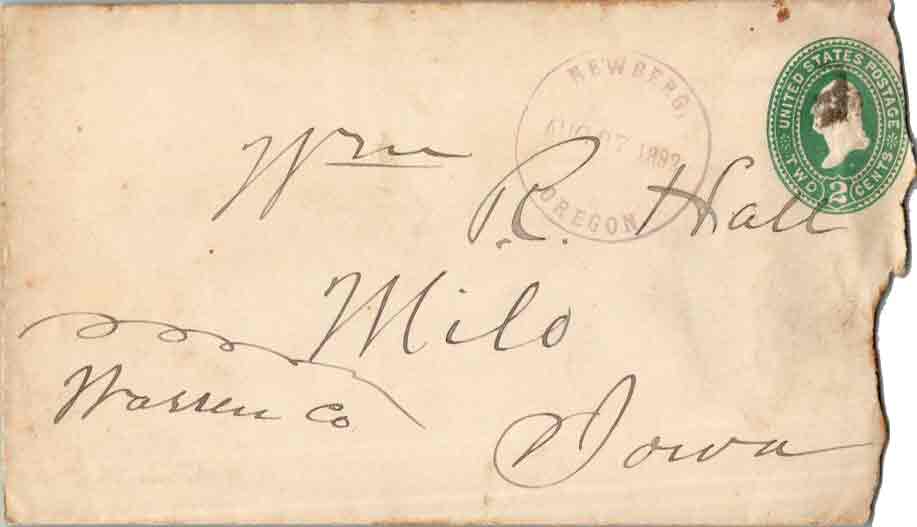 NEWBERG,
AUG 27 1892
OREGON
UNITED STATES POSTAGE
TWO 2 CENTS
Wm R. Hall
Milo
Warren Co
Iowa